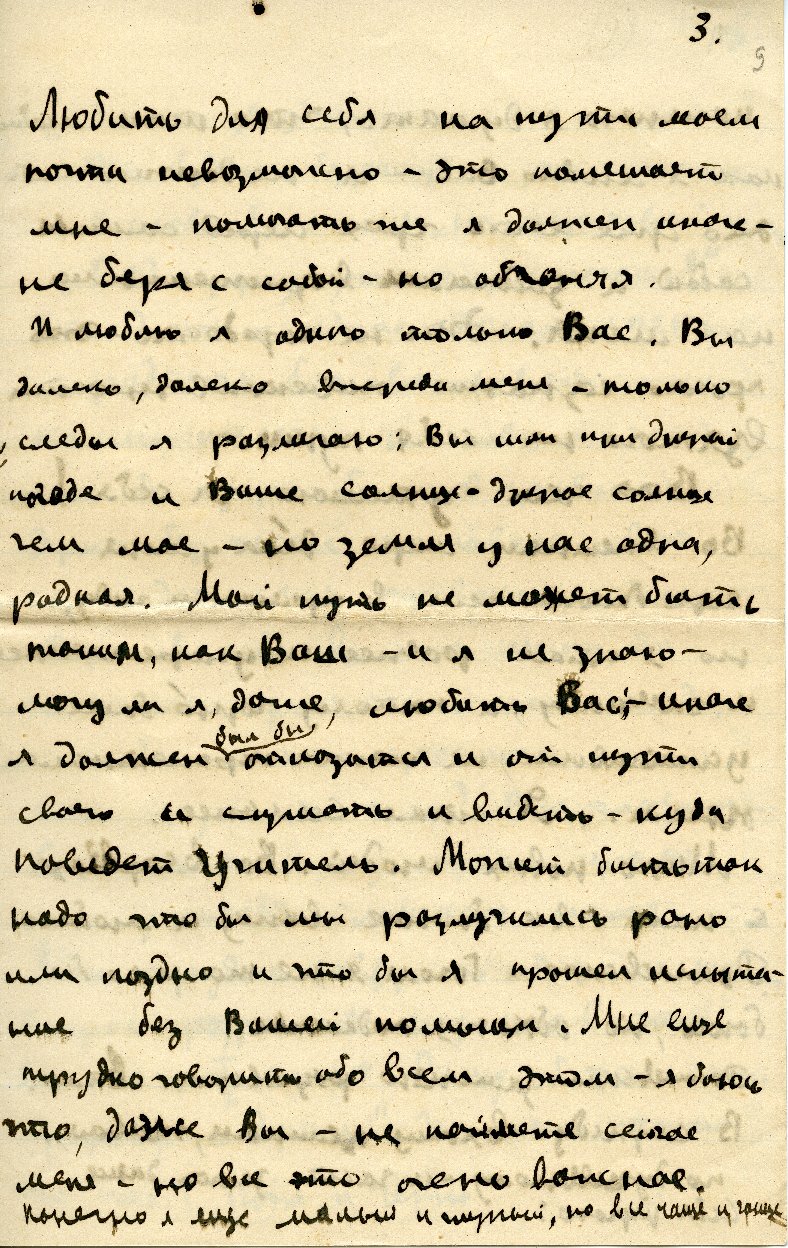 3.
9
Любить для себя на пути моем
почти невозможно – это помешает
мне – помогать же я должен иначе –
не беря с собой – но обгоняя.
И люблю я одного только Вас. Вы
далеко, далеко впереди меня – только
следы я различаю; Вы шли при другой
погоде и Ваше солнце – другое солнце
чем мое – но земля у нас одна,
родная. Мой путь не может быть
таким, как Ваш – и я не знаю –
могу ли я, даже, любить Вас; – иначе
я должен был бы отказаться и от пути
своего и слушать и видеть – куда
поведет Учитель. Может быть так
надо что бы мы разлучились рано
или поздно и что бы я прошел испыта-
ние без Вашей помощи. Мне еще
трудно говорить обо всем этом – я боюсь
что, даже Вы – не поймете сейчас
меня – но все это очень важное.
Конечно я еще малыш и глупый, но все чаще и чаще